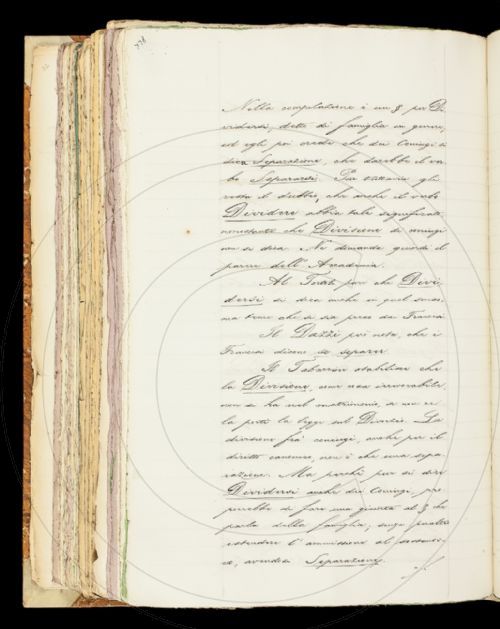 778
Nella compilazione è un § per Di
vidersi, detto di famiglia in genere,
ed egli poi crede che dei Coniugi si
dica Separazione, che darebbe il ver
bo Separarsi. Pur tuttavia gli
resta il dubbio, che anche il verbo
Dividere abbia tale significato
nonostante che Divisione di coniugi
non si dica. Ne domanda quindi il
parere dell'Accademia.
Al Tortoli pare che Divi
dersi si dica anche in quel senso,
ma teme che si sia preso da Francia
Il Dazzi poi nota, che i
Francesi dicono se séparer
Il Tabarrini stabilisce che
la Divisione, come cosa irrevocabile,
non si ha nel matrimonio, se non vi è
la legge sul Divorzio. La
divisione fra coniugi, anche per il
diritto canonico, non è che una sepa
razione. Ma perché pur si dice
Dividersi anche dei Coniugi, pro
porrebbe di fare una giunta al § che
parla della famiglia, senza peraltro
estendere l'ammissione al sostanti
vo, avendosi Separazione.